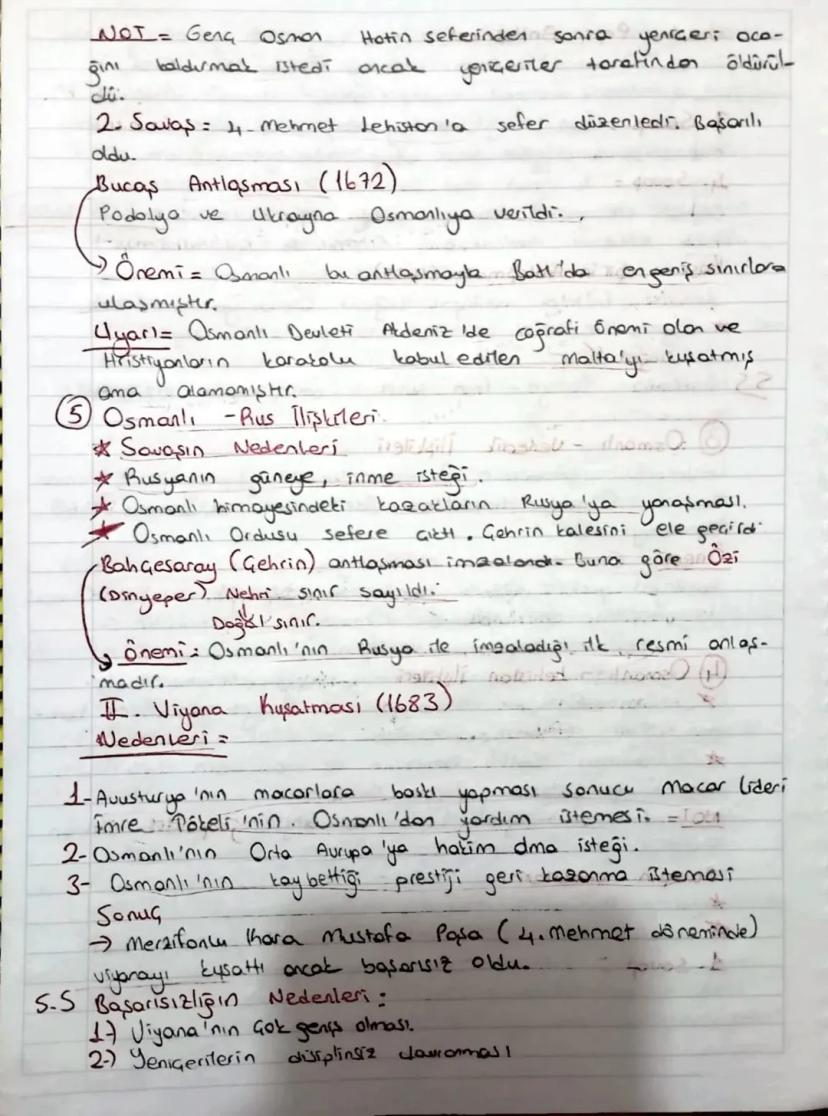 NOT = Genç Osman Hotin seferinden sonra yeniçeri oca-
ğını kaldırmak istedi ancak yeniçeriler tarafından öldürül-
dü.
2. Savaş = 4. Mehmet Lehistan'a sefer düzenledi. Başarılı
oldu.
Bucaş Antlaşması (1672)
Podolya ve Ukrayna Osmanlıya verildi.
Önemi = Osmanlı bu antlaşmayla Batı'da en geniş sınırlara
ulaşmıştır.
Uyarı = Osmanlı Devleti Akdeniz'de coğrafi önemi olan ve
Hristiyanların karakolu kabul edilen Malta'yı kuşatmış
ama alamamıştır.
5 Osmanlı - Rus İlişkileri
* Savaşın Nedenleri
* Rusyanın güneye, inme isteği.
* Osmanlı himayesindeki kazakların Rusya'ya yanaşması.
* Osmanlı Ordusu sefere çıktı. Çehrin kalesini ele geçirdi.
Bahçesaray (Çehrin) antlaşması imzalandı. Buna göre Özi
(Dinyeper) Nehri sınır sayıldı.
Doğal sınır.
Önemi: Osmanlı'nın Rusya ile imzaladığı ilk resmi anlaş-
madır.
II. Viyana Kuşatması (1683)
Nedenleri =
1- Avusturya'nın macarlara baskı yapması sonucu Macar lideri
İmre Tökeli'nin Osmanlı'dan yardım istemesi.
2- Osmanlı'nın Orta Avrupa'ya hakim olma isteği.
3- Osmanlı'nın kaybettiği prestiji geri kazanma istemesi
Sonuç
→ Merzifonlu Kara Mustafa Paşa (4. Mehmet döneminde)
viyanayı kuşattı ancak başarısız oldu.
S.S Başarısızlığın Nedenleri:
1-) Viyana'nın çok geniş olması.
2-) Yeniçerilerin disiplinsiz davranması